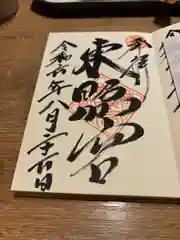 奉拝
東照宮
令和六年八月二十六日